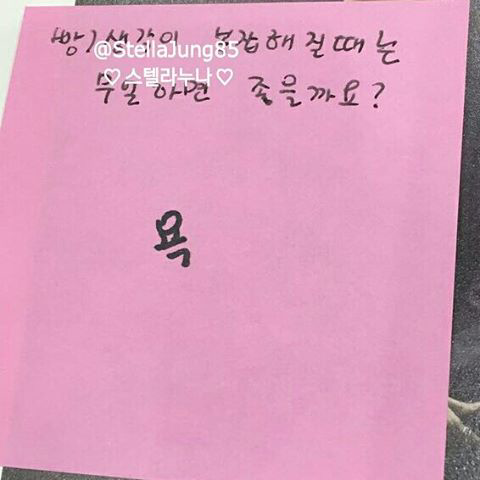 생각이 복잡해질때는
@StellaJung85
♡스텔라누나♡
무얼하면 좋을까요?
욕